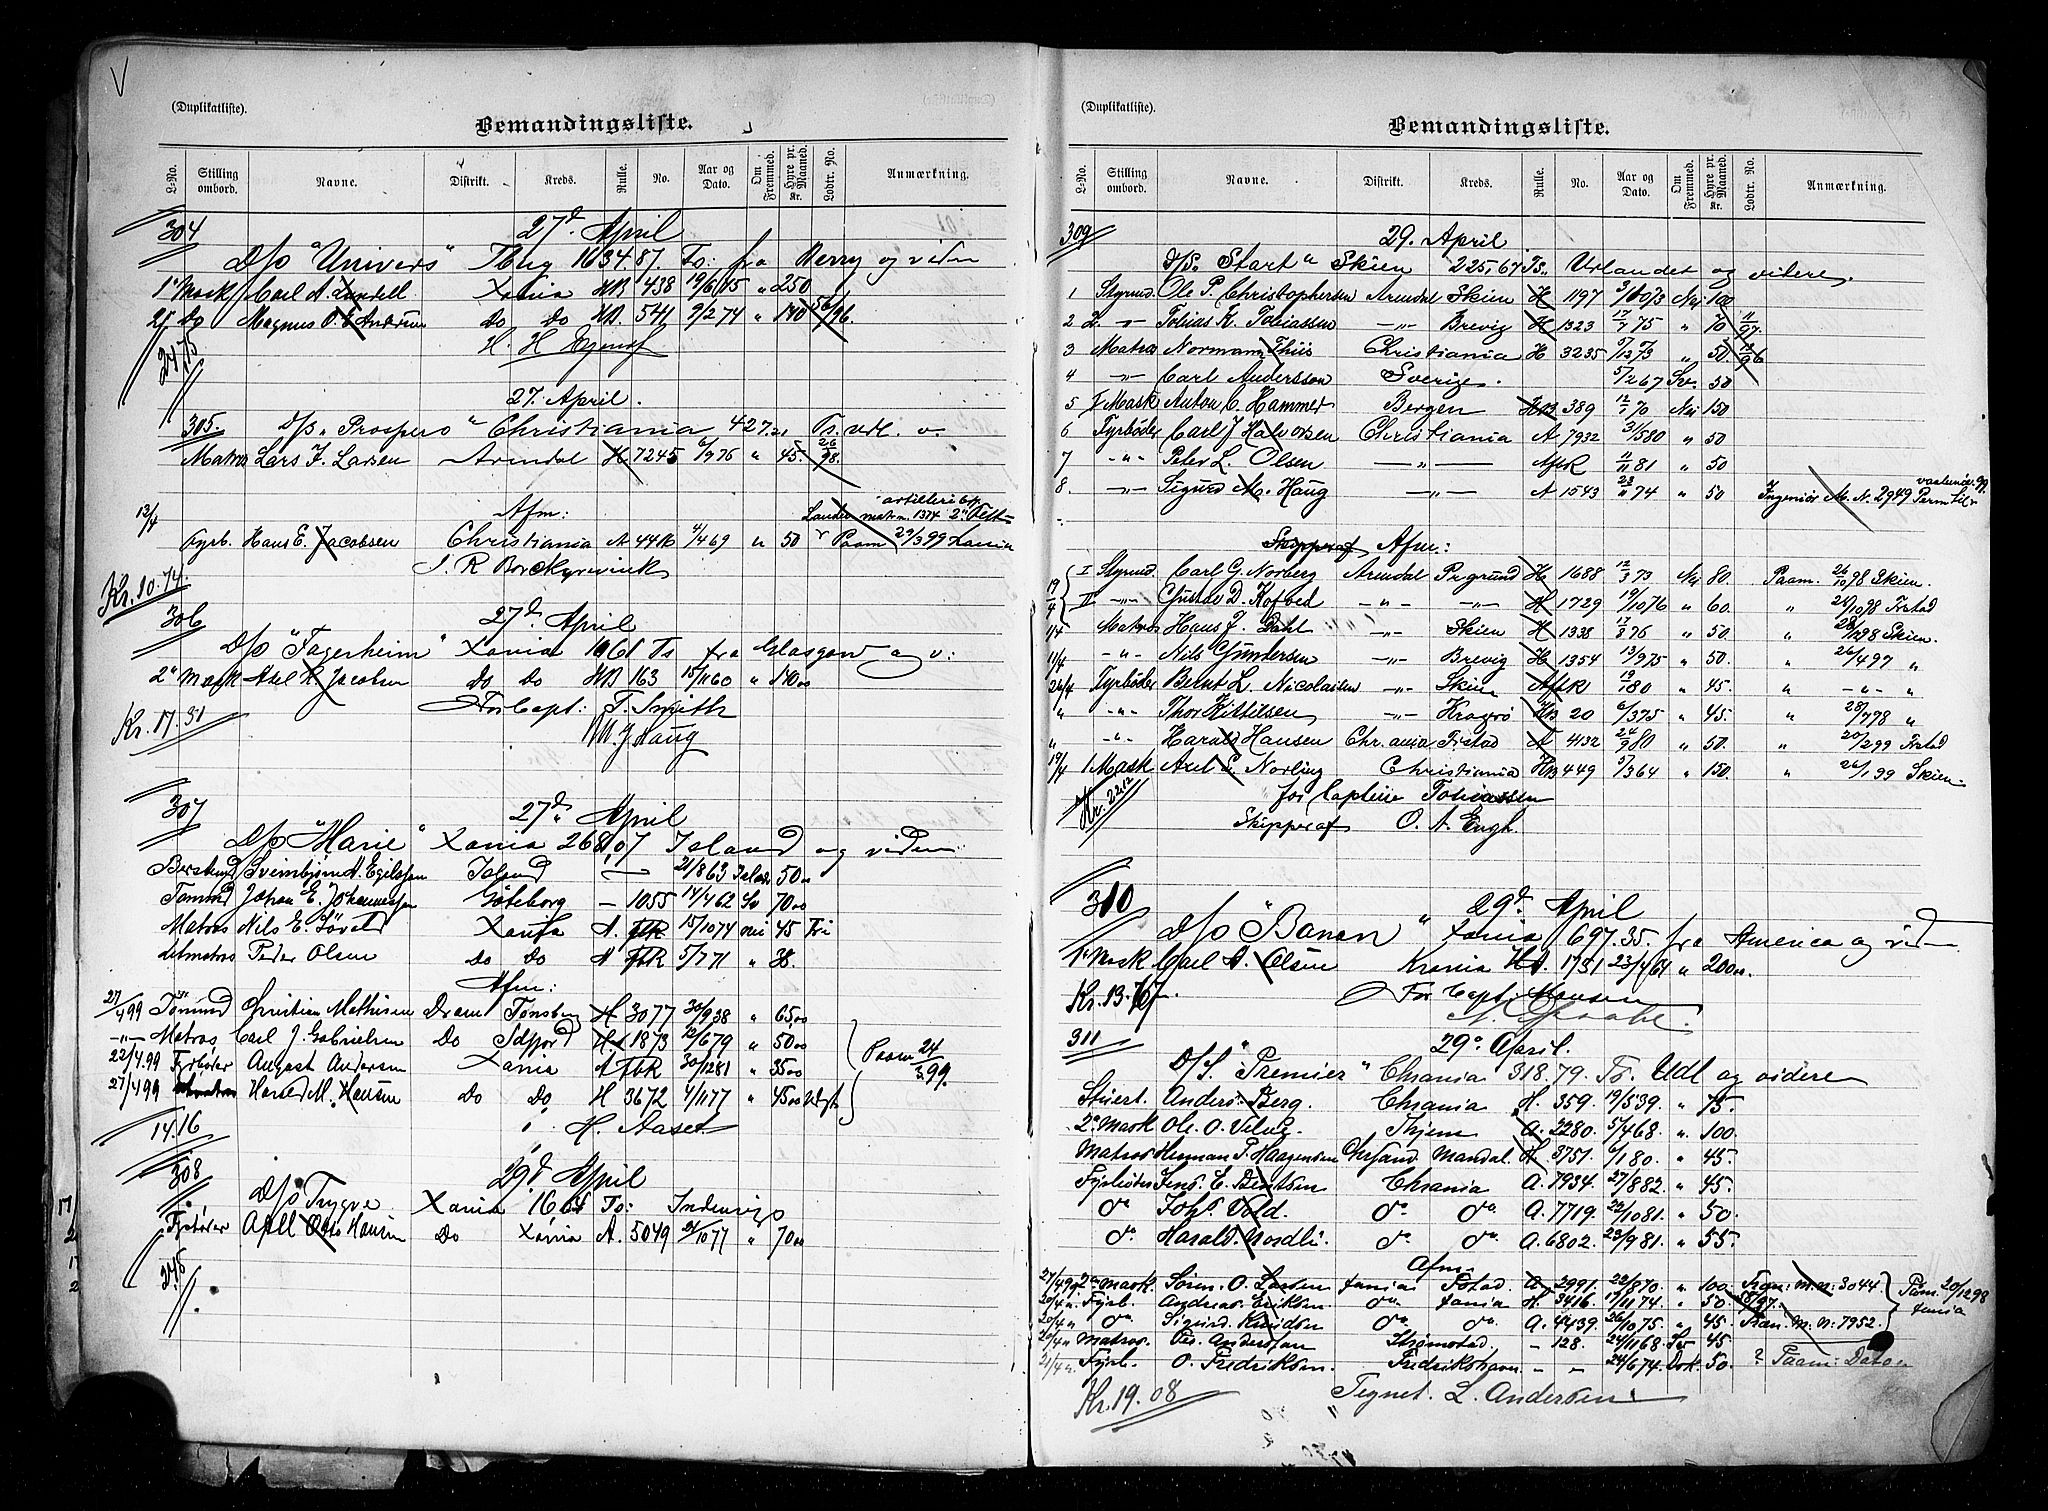 V
(Duplikatliste).
Bemandingsliste.
L-No. Stilling ombord. Navne. Distrikt. Kreds. Rulle. No. Aar og Dato. Om Fremmed. Hyre pr. Maaned. Kr. Lodtr. No. Anmærkning.
304 27d April
D/S "Univers" Tbug 1034.87 Ts: fra Berry og viden
1e Mask Carl A. Lundell Xania HB 438 19/6 65 " 250
2. Do Magnus O. E Andersen Do Do HB. 541 9/2 74 " 140 56/96
24.75
27. April.
305. D/S "Prospero" Christiania 427.21 Ts. udl. v.
Matros Lars J. Larsen Arendal H 7245 6/9 76 " 45. 26/98.
Afm:
13/4 Fyrb. Hans E. Jacobsen Christiania A 448 4/4 69 " 50 Paam 29/3 99 Xania
Kr. 10.74.
306 27d April
D/S "Fagerheim" Xania 1061 Ts fra Glasgow og v:
2den Mask Axel R. Jacobsen Do Do HB 163 15/11 60 " 140.00
For Capt: T. Smith
Kr. 17.31
M. J. Haug
307 27d April
D/S "Marie" Xania 268.07 Island og viden
Sveinbjörn A. Egilsson Island 21/8 63 Island 50.00
Johan E. Johannessen Göteborg — 1055 14/4 62 Sv 70.00
Matros Nils E. Xania A. 15/10 74 no 45 Fri
Letmatros Peder Olsen Do Do A 5/7 71 " 38.
Afm:
27/4 99 Christian Mathisen Dram Tønsberg H 3077 30/9 38 " 65.00
—"— Matros Carl J. Gabrielsen Do Sdfjord H 1873 12/6 79 " 50.00 Paam 24/3 99.
22/4.99 Fyrbøter August Andersen Xania A 30/12 81 " 35.00
27/4 99 Harald M. Hansen Do Do H 3672 4/11 77 " 45.00
14.16 H. Aase
308 29d April
D/S Trygve Xania Ts: Indenrigs
Fyrbøter Axell Otto Hansen Do Xania A. 5049 21/10 77 " 70.00
(Duplikatliste).
Bemandingsliste.
L-No. Stilling ombord. Navne. Distrikt. Kreds. Rulle. No. Aar og Dato. Om Fremmed. Hyre pr. Maaned. Kr. Lodtr. No. Anmærkning.
309 29. April
D/S. "Start" Skien 225,67 Ts. Urlandet og videre.
1 Styrmd. Ole P. Christophersen Arendal Skien H 1197 3/10 73 Nei 100
2 2. —"— Tobias K. Tobiassen —"— Brevig H 1323 17/7 75 " 70 11/97.
3 Matros Norman Thiis Christiania H 3235 5/12 73 " 50. 12/96
4 —"— Carl Andersson Sverige. 5/2 67 Sv. 50
5 1 Mask Anton C. Hammer Bergen HB 389 12/1 70 Nei 150
6 Fyrbøder Carl J Halvorsen Christiania A 7932 31/5 80 " 50
7 —"— Peter L. Olsen —"— AfbR 11/11 81 " 50
8. —"— Sigurd M. Haug —"— A 1543 23/11 74 " 50 Ingeniør M. N. 2949
Skipperaf Afm:
19/4 I Styrmd. Carl G. Norberg Arendal Prgrund H 1688 12/3 73 Nei 80. Paam. 26/10 98 Skien.
II —"— Gustav D. Kofoed —"— —"— H 1729 19/10 76 " 60. " 25/10 98 Frstad
1/4 Matros Hans J. Dahl —"— Skien H 1338 17/8 76 " 50. " Skien.
11/4 —"— Nils Gundersen —"— Brevig H 1354 13/9 75 " 50. " 26/4 97 "
26/4 Fyrbøder Bernt L. Nicolaisen —"— Skien AfbR 19/1 80 " 45. " —"— "
" —"— Thor Kittilsen —"— Kragerø HB 20 6/3 75 " 45. " 28/7 98 "
" —"— Harald Hansen Chr.ania Frstad A 4132 24/9 80 " 50. " 20/2 99 Frstad
19/4 1 Mask Axel E. Norling Christiania HB 449 5/3 64 " 150. " 26/1 99 Skien.
Kr. 22.12 for Capteiie Tobiassen
Skipperaf O. A. Engh.
310 29d. April
D/S "Banan" Xania 697.35. fra America og viden
1e Mask Carl A. Olsen Krania HB. 1731 23/4 61 " 200.00
Kr. 13.67. For Capt. Hansen
311 29. April.
D/S. "Premier" Chrania 318.79. Ts. Udl og videre
Stuert. Anders Berg. Chrania H. 359. 19/5 39. " 75.
2. Mask Ole. O. Velvg. Skjem A. 2280. 5/4 68. " 100.
Matros Herman P. Haagensen Chrsand Mandal. H. 3751. 6/1 80. " 45.
Fyrbøter Jens. E. Bentsen Chrania A. 7934. 27/8 82. " 45.
do Johs. Vold. do do A. 7719. 22/10 81. " 50.
do Harald. Nordli. do do A. 6802. 23/9 81. " 55.
Afm.
27/4 99 2. Mask. Sören. O. Larsen Xania Fstad. A. 2991. 22/8 70. " 100. Fram. M. N. 3044 Paam. 20/12 98 Xania
20/4 " Fyrb. Andreas. Eriksen. do Xania H. 3416. 17/11 74. " 50.
20/4 " do Sigurd. Knudsen do do A. 4439. 26/10 75. " 45. Fram. M. N. 7952.
20/4 " Matros. Andersson Strømstad. — 128. 24/11 68. Sv 45
21/4 " Fyrb. O. Fredriksen. Fredrikshavn — — 24/6 74. Dsk. 50. ? Paam: Dato "
Kr. 19.08 Tegnet. L. Andersen